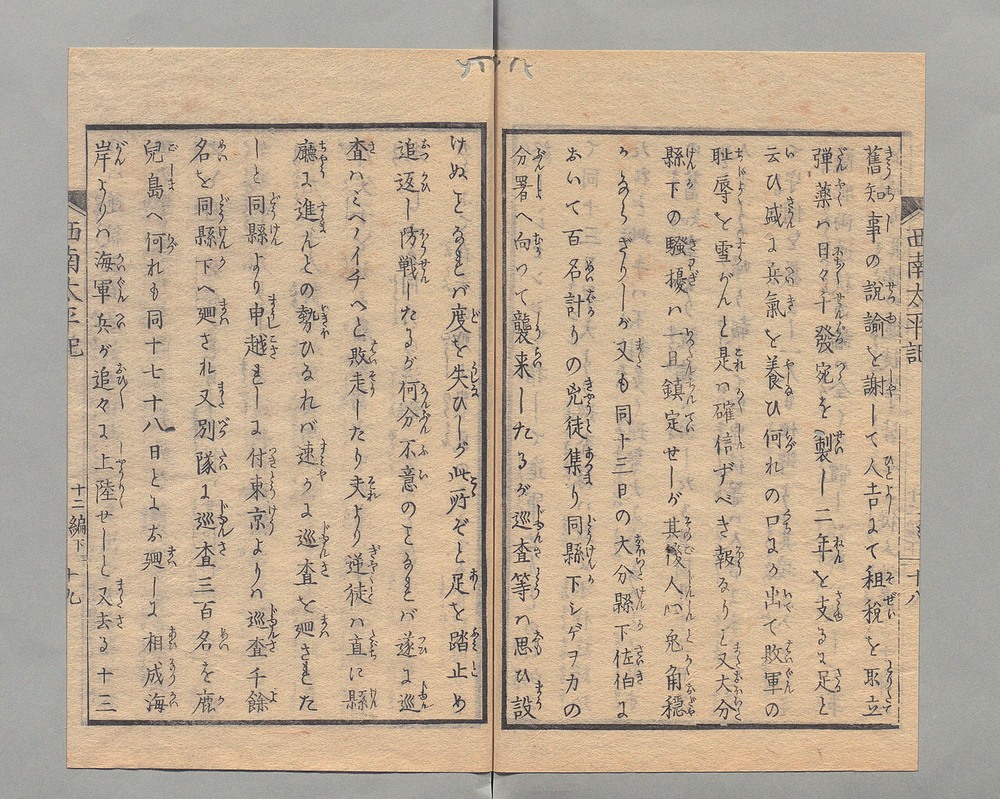 西南太平記
十八
舊知事の説諭を謝して人吉にて租税を取立
弾薬ハ日々千發宛を製し二年を支るに足と
云ひ盛に兵氣を養ひ何れの口にか出て敗軍の
耻辱を雪がんと是ハ確信ずべき報なりと又大分
縣下の騒擾ハ一旦鎮定せしが其後人心兎角穏
かならざりしが又も同十三日の大分縣下佐伯に
おいて百名計りの兇徒集り同縣下シゲヲカの
分署へ向つて襲来したるが巡査等ハ思ひ設
けぬことなれバ度を失ひしが此所ぞと足を踏止め
追返し防戦したるが何分不意のことなれバ遂に巡
査ハミヘノイチへと敗走したり夫より逆徒ハ直に縣
廳に進んとの勢ひなれバ速かに巡査を廻された
しと同縣より申越せしに付東京よりハ巡査千餘
名を同縣下へ廻され又別隊に巡査三百名を鹿
兒島へ何れも同十七十八日とにお廻しに相成海
岸よりハ海軍兵が追々に上陸せしと又去る十三
西南太平記
十二編下
十九